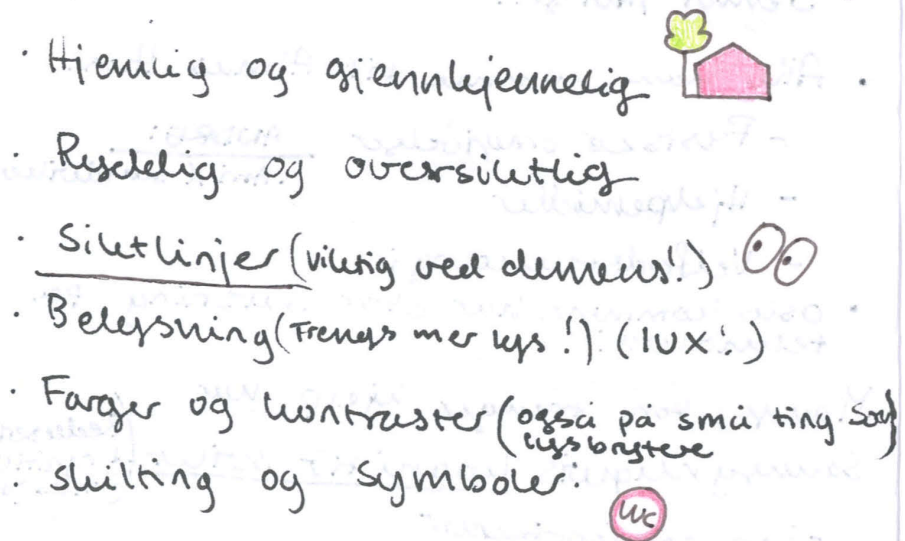 · Hjemlig og gjennkjennelig
· Ryddig og oversiktlig
· Siktlinjer (viktig ved demens!)
· Belysning (Trengs mer lys!) (lux!)
· Farger og kontraster (også på små ting som
lysbrytere)
· Skilting og symboler.
WC